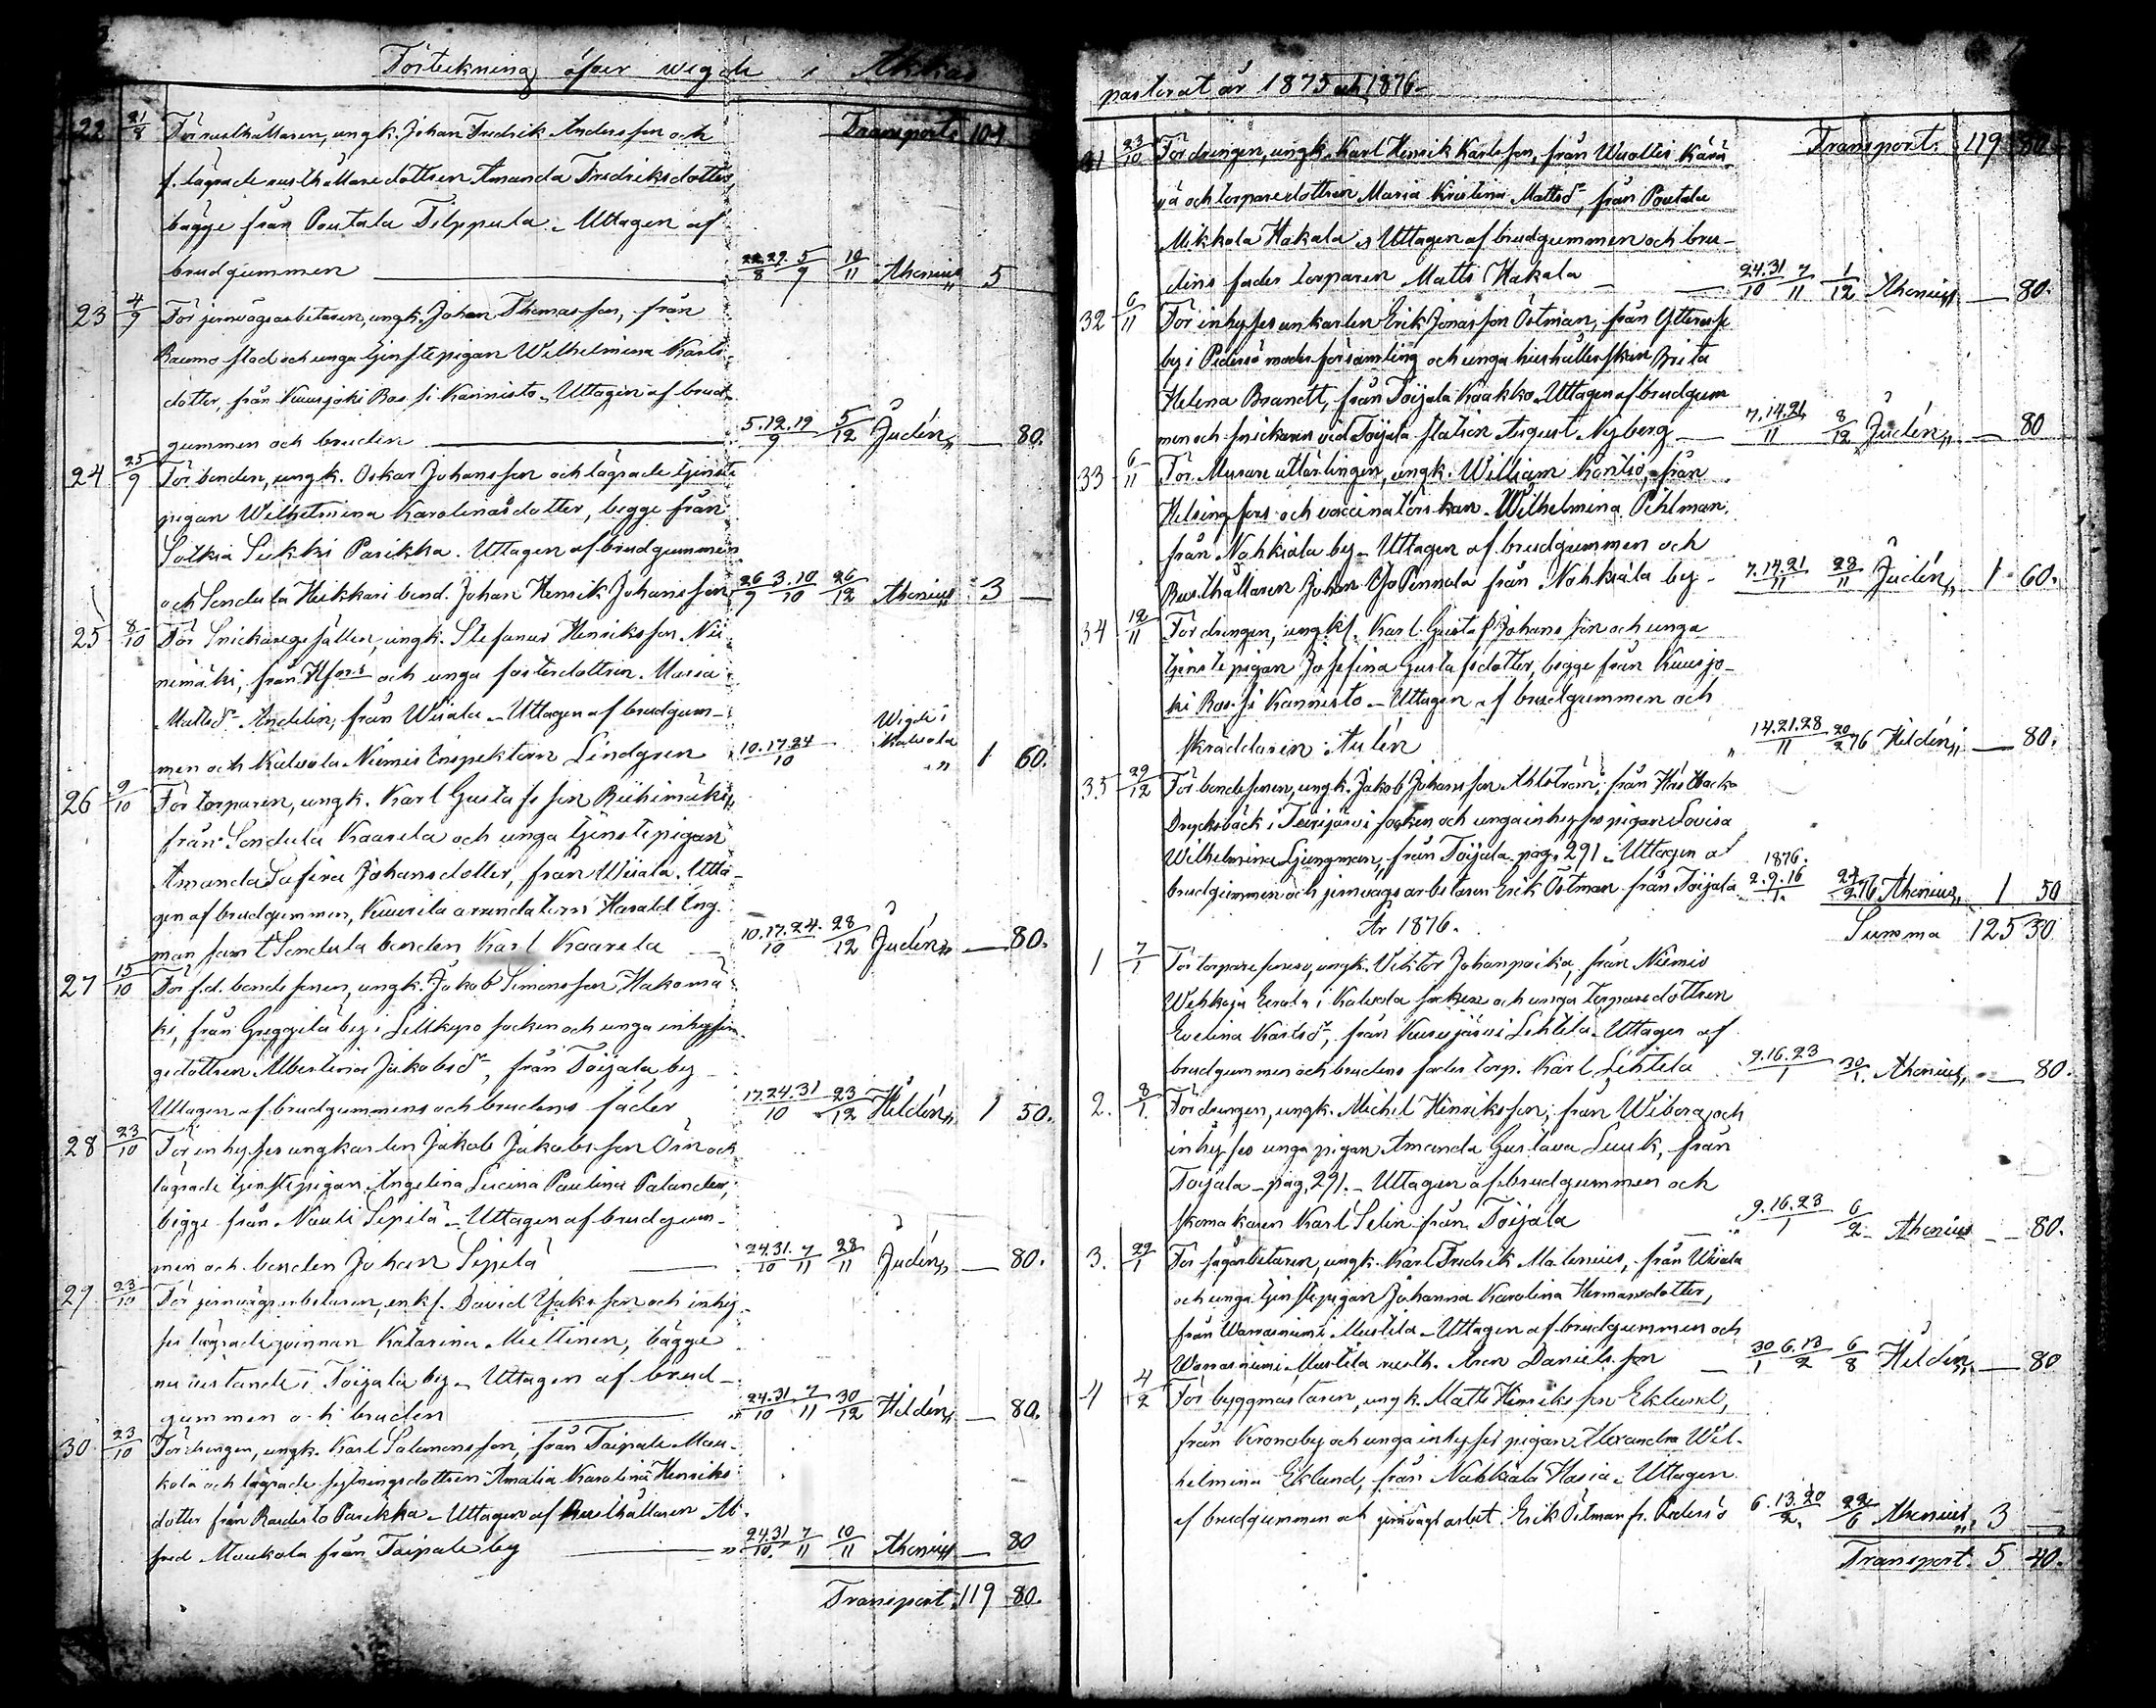 Förteckning öfver wigde i Akkas
22 21/8 För rusthållaren, ungk. Johan Fredrik Andersson och Transport 104
f. lägrade rusthållare dottren Amanda Fredriksdotter,
bägge från Poutala Filppula. Uttagen af
brudgummen 22.29/8 5/9 10/11 Athenius 5
23 4/9 För jernvägsarbetaren, ungk. Johan Thomasson, från
Raumo stad och unga tjenstepigan Wilhelmina Karls
dotter, från Kuurjoki Kannisto. Uttagen af brud
gummen och bruden 5.12.19/9 5/12 Judén 80.
24 25/9 För bonden, ungk. Oskar Johansson och lägrade tjenste
pigan Wilhelmina Karolinasdotter, begge från
Sotkia Sukki Parikka. Uttagen af brudgummen
och Sondula Heikkari bond. Johan Henrik Johansson 26/9 3.10/10 26/12 Athenius 3
25 8/10 För Snickaregesällen, ungk. Stefanus Henriksson Nii
nimäki, från Hfors och unga fosterdottren Maria
Mattsdr Andelin, från Wiiala. Uttagen af brudgum- Wigde i
men och Kalvola Niemis Inspektorn Lindgren 10.17.24/10 Kalvola 1 60.
26 9/10 För torparen, ungk. Karl Gustafsson Riihimäki,
från Sondula Kaarela och unga tjenstepigan
Amanda Safira Johansdotter, från Wiiala. Utta-
gen af brudgummen, Kuurila arrendatorn Harald Eng
man samt Sondula bonden Karl Kaarela 10.17.24./10 28/12 Judén 80.
27 15/10 För f.d. bondesonen, ungk. Jakob Simonsson Hakomä
ki, från by i Lillkyro socken och unga
gedottren Albertina Jakobsdr, från Toijala by
Uttagen af brudgummens och brudens fader 17.24.31/10 23/12 Heldén 1 50.
28 23/10 För inhyses ungkarlen Jakob Jakobsson Örn och
lägrade tjenstepigan Angelina Lucina Paulina Palander,
begge från Nauli Sipilä. Uttagen af brudgum-
men och bonden Johan Sipilä 24.31./10 7/11 28/11 Judén 80.
29 23/10 För jernvägsarbetaren, enkl. David Isaksson och inhy
ses lägrade qvinnan Katarina Miettinen, bägge
nu vistande i Toijala by. Uttagen af brud-
gummen och bruden 24.31/10 7/11 30/12 Heldén 80.
30 23/10 För drengen, ungk. Karl Salomonsson, från Taipale Mau-
kola och lägrade sytningsdottren Amalia Karolina Henriks
dotter från Rardisto Parikka. Uttagen af Rusthållaren Al-
fred Maukola från Taipale by 24.31/10. 7/11 10/11 Athenius 80
Transport. 119 80.
pastorat år 1875 och 1876.
31 23/10 För drengen, ungk. Karl Henrik Karlsson, från Wuoltis Kärä Transport. 119 80.
jä och torparedottren Maria Kristina Mattsdr, från Poutala
Mikkola Hakala. Uttagen af brudgummen och bru-
dens fader torparen Matts Hakala 24.31/10 7/11 1/12 Athenius 80.
32 6/11 För inhyses unkarlen Erik Jonasson Östman, från Ytteresse
by i Pedersö moderförsamling och unga hushållerskan Brita
Helena Brandt, från Toijala Kaakko. Uttagen af brudgum
men och snickaren vid Toijala station August Nyberg 7.14.21/11 8/12 Judén 80
33 6/11 För Murare utlärlingen, ungk. William Kontio, från
Helsingfors och vaccinatörskan Wilhelmina Pihlman,
från Nahkiala by. Uttagen af brudgummen och
Rusthållaren Johan Yso Pennola från Nahkiala by. 7.14.21/11 28/11 Judén 1 60.
34 12/11 För drengen, ungkl. Karl Gustaf Johansson och unga
tjenstepigan Josefina Gustafsdotter, begge från Kuurjo-
ki Kannisto. Uttagen af brudgummen och
skräddaren Aulén 14.21.28/11 20/2 76 Heldén 80.
35 29/12 För bondesonen, ungk. Jakob Johansson Ahlström, från
Drycksbäck i Teerijärvi socken och unga inhyses pigan Lovisa
Wilhelmina Ljungman, från Toijala pag. 291. Uttagen af 1876.
brudgummen och jernvägsarbetaren Erik Östman från Toijala 2.9.16/1. 27/2 76 Athenius 1 50
År 1876. Summa 125 30
1 7/1 För torparesonen, ungk. Viktor Johanpoika, från Niemis
Wehkoja Eerola i Kalvola socken och unga torparedottren
Evelina Karlsdr, från Kuurjärvi Lehtela. Uttagen af
brudgummen och brudens fader torp. Karl Lehtela 9.16.23/1 30/1. Athenius 80.
2. 8/1. För drengen, ungk. Michel Henriksson, från Wiborg och
inhyses unga pigan Amanda Gustava Luuk, från
Toijala pag. 291. Uttagen af brudgummen och
skomakaren Karl Selin från Toijala 9.16.23/1 6/2. Athenius 80.
3. 29/1 För sågarbetaren, ungk. Karl Fredrik Malenius, från Wiiala
och unga tjenstepigan Johanna Karolina Hermansdotter,
från Warrasniemi Mustila. Uttagen af brudgummen och
Warrasniemi Mustila rusth. Aron Danielsson 30/1 6.13/2 6/8 Heldén 80
4 4/2 För byggmästaren, ungk. Matts Henriksson Eklund,
från Kronoby och unga inhyses pigan Alexandra Wil-
helmina Eklund, från Nahkiala Hasia. Uttagen
af brudgummen och jernvägsarbet. Erik Östman fr. Pedersö 6.13.20/2. 22/6 Athenius 3
Transport. 5 40.